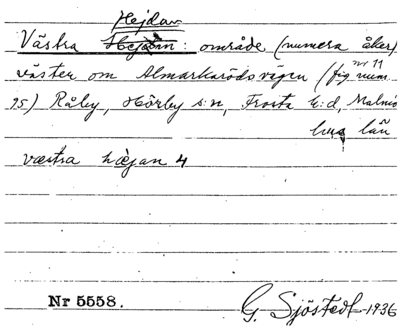 Hejdan
Västra Hejdan: område (numera åker)
nr 11
väster om Almarkarödsvägen (fig num
15) Råby, Hörby s:n, Frosta h:d, Malmö
hus län
västra hæjan 4
Nr 5558.
G. Sjöstedt 1936